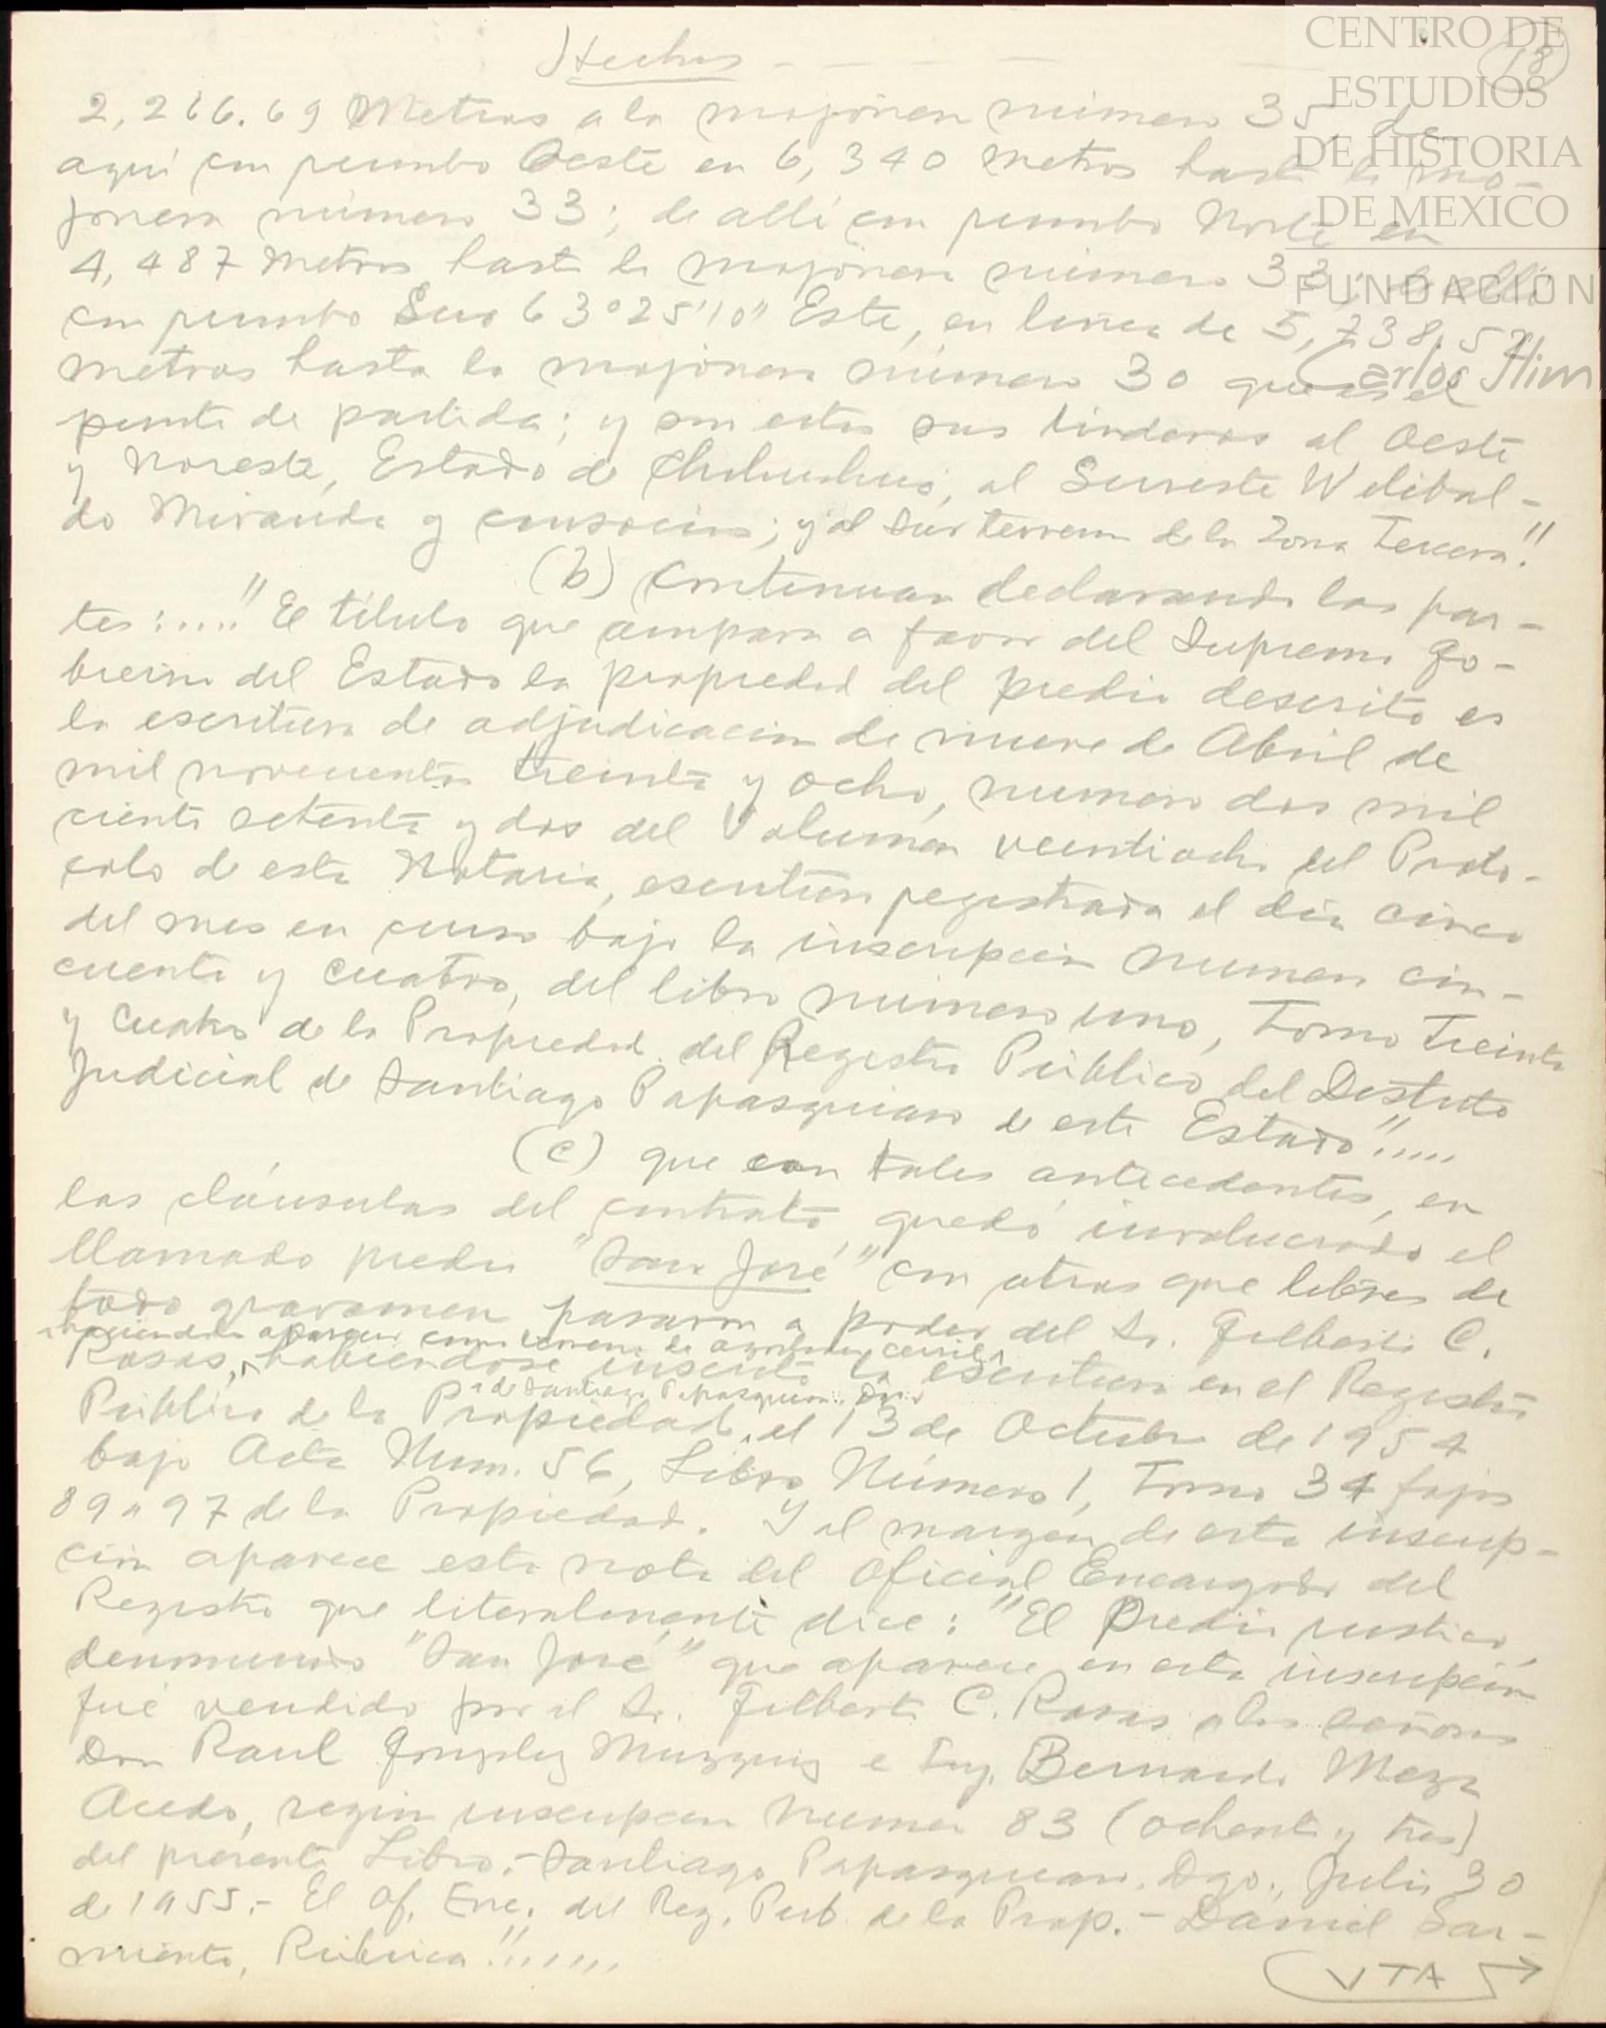 Hechos
18
2,266.69 Metros a la mojonera número 35, de
aquí con rumbo Oeste en 6,340 metros hasta la mo-
jonera número 33; de allí con rumbo Norte en
4,487 metros hasta la mojonera número 33; de allí
con rumbo Sur 63°25'10" Este, en línea de 5,738.52
metros hasta la mojonera número 30 que es el
punto de partida; y son estos sus linderos al Oeste
y Noreste, Estado de Chihuahua, al Sureste Welibal-
do Miranda y consocios; y al Sur terrenos de la Zona Tercera."
(b) Continuan declarando las par-
tes:...." El título que ampara a favor del Supremo Go-
bierno del Estado la propiedad del predio descrito es
la escritura de adjudicación de nueve de Abril de
mil novecientos treinta y ocho, numero dos mil
ciento setenta y dos del Volumen veintiocho del Proto-
colo de esta Notaria, escritura registrada el día cinco
del mes en curso bajo la inscripción numero cin-
cuenta y cuatro, del libro número uno, Tomo Treinta
y Cuatro de la Propiedad del Registro Público del Distrito
Judicial de Santiago Papasquiaro de este Estado".....
(c) que con tales antecedentes, en
las cláusulas del contrato, quedó involucrado el
llamado predio "San José" con otros que libres de
todo gravamen pasaron a poder del Sr. Gilberto C.
haciendola aparecer como terreno de agostadero cerril
Rosas, habiendose inscrito la escritura en el Registro
de Santiago Papasquiaro, Dgo.
Público de la Propiedad, el 13 de Octubre de 1954
bajo Acta Num. 56, Libro Número 1, Tomo 34 fojas
89 a 97 de la Propiedad. Y al margen de esta inscrip-
ción aparece esta nota del Oficial Encargado del
Registro que literalmente dice: "El Predio rustico,
denominado "San José" que aparece en esta inscripción
fué vendido por el Sr. Gilberto C. Rosas a los señores
Don Raul González Muzquiz e Ing. Bernardo Meza
Acedo, según inscripcion numero 83 (ochenta y tres)
del presente Libro.- Santiago Papasquiaro, Dgo., Julio 30
de 1955.- El Of. Enc. del Reg. Pub. de la Prop. - Daniel Sar-
miento, Rúbrica".......
VTA
CENTRO DE
ESTUDIOS
DE HISTORIA
DE MEXICO
FUNDACIÓN
Carlos Slim